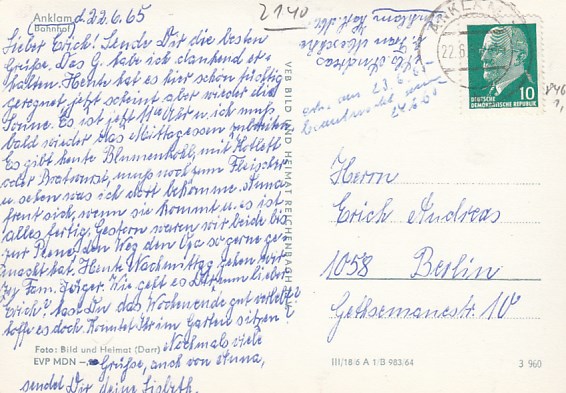 Anklam d. 22.6.65
Bahnhof
Lieber Erich! Sende Dir die besten
Grüße. Das G. habe ich dankend er-
halten. Heute hat es hier schön tüchtig
geregnet, jetzt scheint aber wieder die
Sonne. Es ist jetzt 11 Uhr u. ich muß
bald wieder das Mittagessen zubereiten.
Es gibt heute Blumenkohl, mit Kotlett
oder Bratwurst, muß noch zum Fleischer
u. sehen was ich dort bekomme. Anna
freut sich, wenn sie kommt u. es ist
alles fertig. Gestern waren wir beide bis
zur Peene, den Weg den Opa so gerne ge-
macht hat. Heute Nachmittag gehen wir
z. Fam. Jäger. Wie geht es Dir, mein lieber
Erich? hast Du das Wochenende gut verlebt?
hoffe es doch. Konntet Ihr im Garten sitzen?
Nochmals viele
Grüße, auch von Anna,
sendet Dir deine Lisbeth.
Foto: Bild und Heimat (Darr)
EVP MDN –.
VEB BILD UND HEIMAT REICHENBACH
2140
Andreas
Anklam
23.6.65
24.6.65
ANKLAM
22.6
10
DEUTSCHE
DEMOKRATISCHE REPUBLIK
Herrn
Erich Andreas
1058 Berlin
Gethsemanestr. 10
III/18/6 A 1/B 983/64
3 960